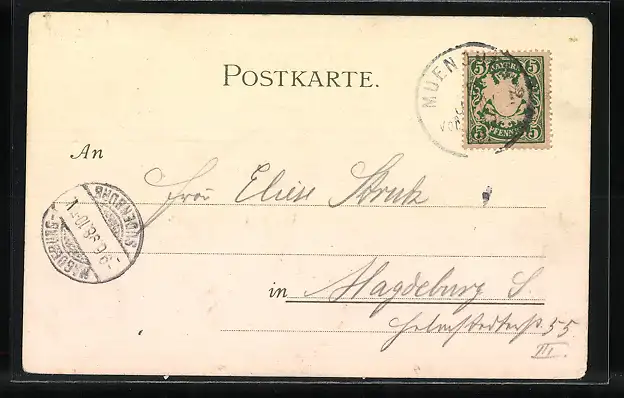 POSTKARTE.
MUEN
BAYERN
5 5
PFENNIG
5 5
An
Frau Eliese Strutz
MAGDEBURG-
SUDENBURG
in Magdeburg S
Helmstedterstr. 55
III.